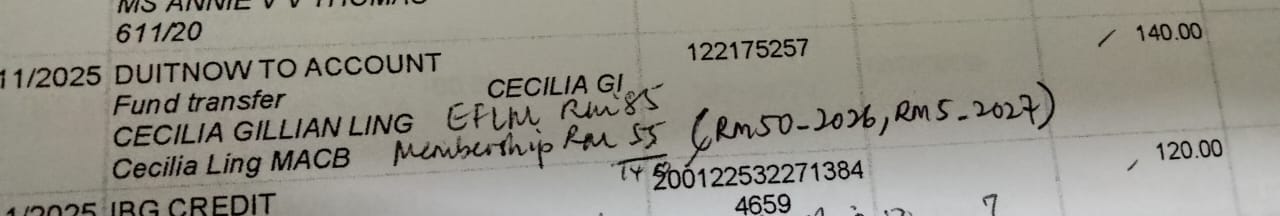 MS ANNIE V V THOMAS
611/20
11/2025 DUITNOW TO ACCOUNT 122175257 140.00
Fund transfer CECILIA GI
CECILIA GILLIAN LING EFLM Rm 85
Cecilia Ling MACB Membership Rm 55 (Rm50-2026, Rm5-2027)
140
200122532271384 120.00
1/2025 IBG CREDIT 4659
7